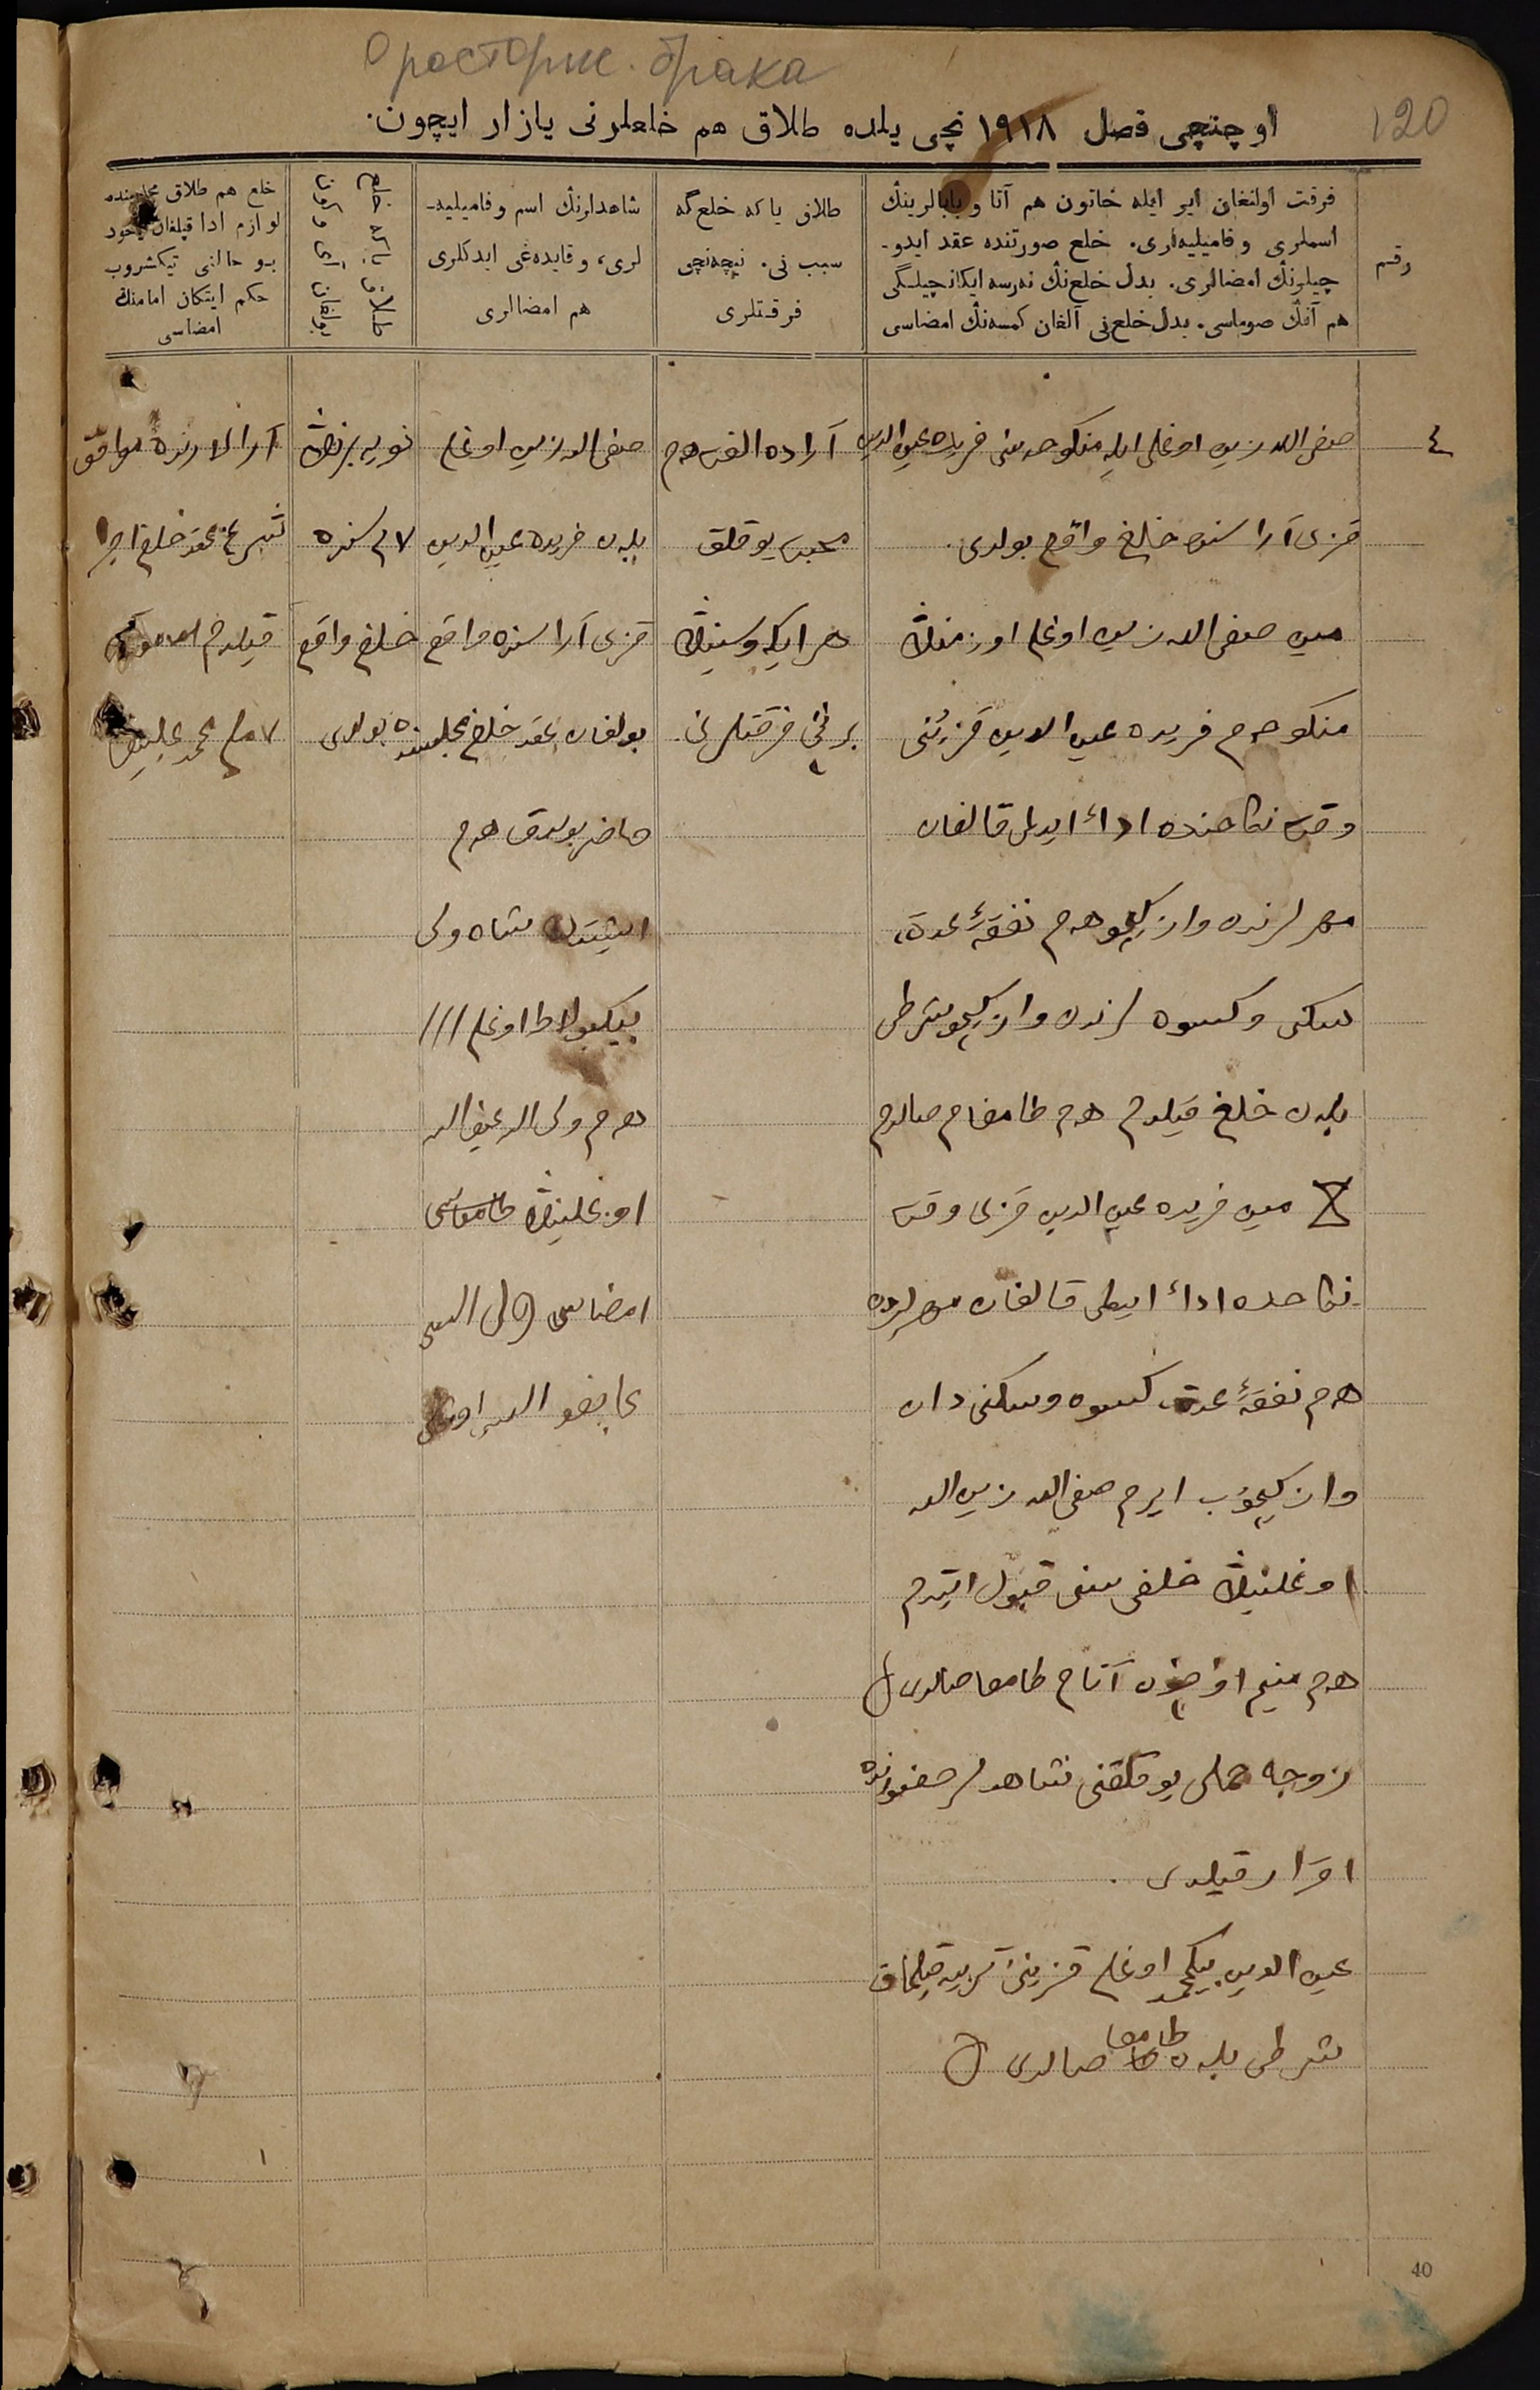 О растор. брака
120
اوچنچی فصل ۱۹۱۸ نچی یلده طلاق هم خلعلرنی یازار ایچون.
رقم
فرقت اولنغان ایر ایله خاتون هم آتا و بابالرینڭ
اسملری و فامیلیه‌لری. خلع صورتنده عقد ایدو-
چیلرنڭ امضالری. بدل خلع‌نڭ نەرسه ایکانچیلگی
هم آنڭ صوماسی. بدل خلع‌نی آلغان کمسه‌نڭ امضاسی
طلاق یا که خلع گه
سبب نی. نیچەنچی
فرقتلری
شاهدلرنڭ اسم و فامیلیه-
لری، و قایده‌غی ایدکلری
هم امضالری
طلاق یا که خلع
بولغان آی و کون
خلع هم طلاق مجلسنده
لوازم ادا قیلغان یاخود
بو حالنی تیکشروب
حکم ایتکان امامنڭ
امضاسی
٤
صفی الله زین اوغلی ایله منکوحه سی فریده عین الدین
قزی آراسنده خلع واقع بولدی.
مین صفی الله زین اوغلی اوزمنڭ
منکوحەم فریده عین الدین قزینی
وقت نکاحنده اداء ایدلی قالغان
مهرلرندن وازکیچو هم نفقۀ عدة،
سکنی وکسوه لرندن وازکیچو شرطی
بلەن خلع قیلدم هم طامغام صالدم
مین فریده عین الدین قزی وقت
نکاحده اداء ایطی قالغان مهرلردن
هم نفقۀ عدت کسوه وسکنی دان
وازکیچوب ایرم صفی الله زین الله
اوغلنیڭ خلعی سنی قبول ایتدم
هم منیم اوچون آتام طامغا صالدی
زوجه حملی یوقلقنی شاهدلر حضورنده
اقرار قیلدی.
عین الدین بیکمحمد اوغلی قزینی تربیه قیلماق
شرطی بلەن طامغا صالدی
آراده الفت هم
محبت یوقلق
هر ایکیوسینڭ
برنچی فرقتلری.
صفی الله زین اوغلی
بلەن فریده عین الدین
قزی آراسنده واقع
بولغان عقد خلع مجلسنده
حاضر بولدق هم
ایشتدك شاه ولی
بیکبولاط اوغلی ///
هم ولی الله
اوغلینڭ طامغاسی
امضاسی ولی الله
نویەبرنڭ
۷ سنده
خلع واقع
بولدی
آرالارنده موافق
شرع عقد خلع اجرا
قیلدم